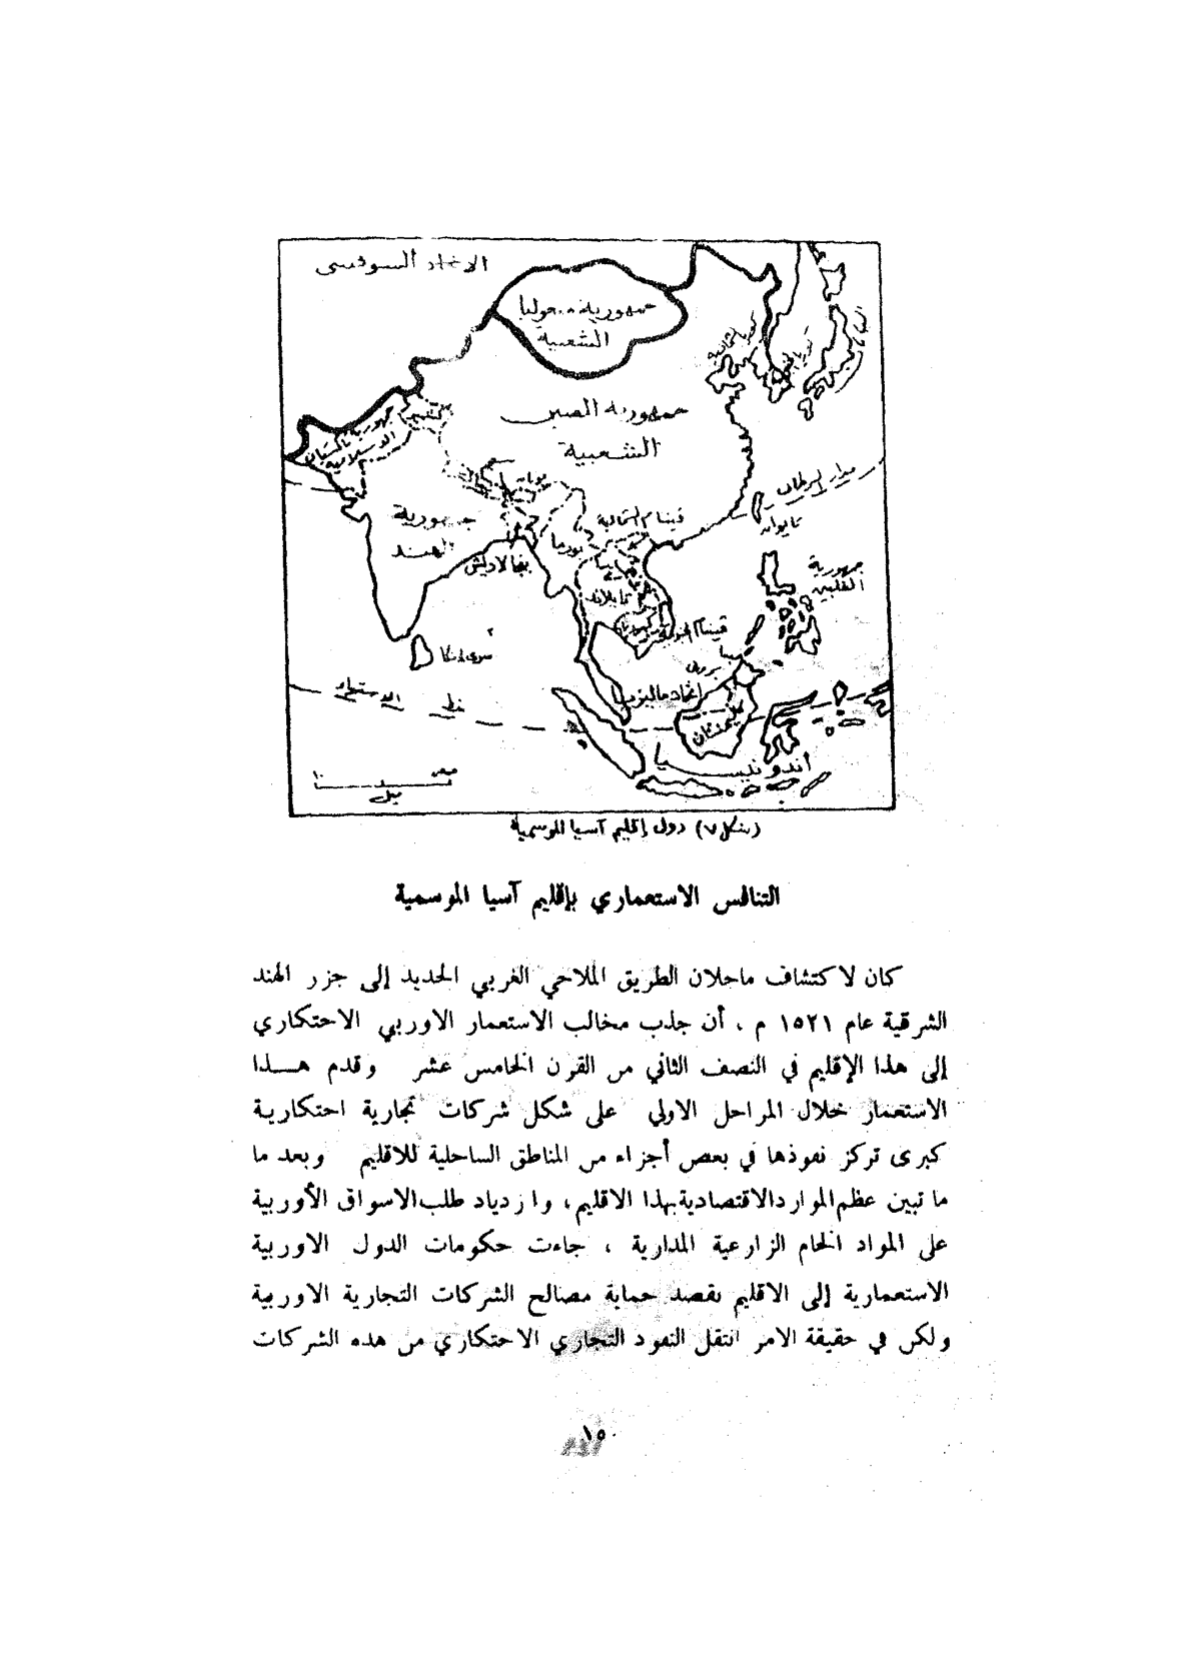 الاتحاد السوفيتى
جمهورية منغوليا
الشعبية
كوريا الشمالية
جمهورية الصين
الشعبية
جمهورية باكستان
الاسلامية
كشمير
مدار السرطان
تايوان
فيتنام الشمالية
جمهورية
الهند
بورما
بنجالاديش
جمهورية
الفلبين
تايلاند
سرى لنكا
بروناى
اتحاد ماليزيا
خط الاستواء
أندونيسيا
ميل
(شكل ٧) دول إقليم آسيا الموسمية
التنافس الاستعماري بإقليم آسيا الموسمية
كان لاكتشاف ماجلان الطريق الملاحي الغربي الجديد إلى جزر الهند
الشرقية عام ١٥٢١ م ، أن جذب مخالب الاستعمار الاوربي الاحتكاري
إلى هذا الإقليم في النصف الثاني من القرن الخامس عشر وقدم هــذا
الاستعمار خلال المراحل الاولي على شكل شركات تجارية احتكارية
كبرى تركز نفوذها في بعض أجزاء من المناطق الساحلية للاقليم وبعد ما
ما تبين عظم الموارد الاقتصادية بهذا الاقليم ، وازدياد طلب الاسواق الأوربية
على المواد الخام الزارعية المدارية ، جاءت حكومات الدول الاوربية
الاستعمارية إلى الاقليم بقصد حماية مصالح الشركات التجارية الاوربية
ولكن في حقيقة الامر انتقل النفوذ التجاري الاحتكاري من هذه الشركات
١٥٠